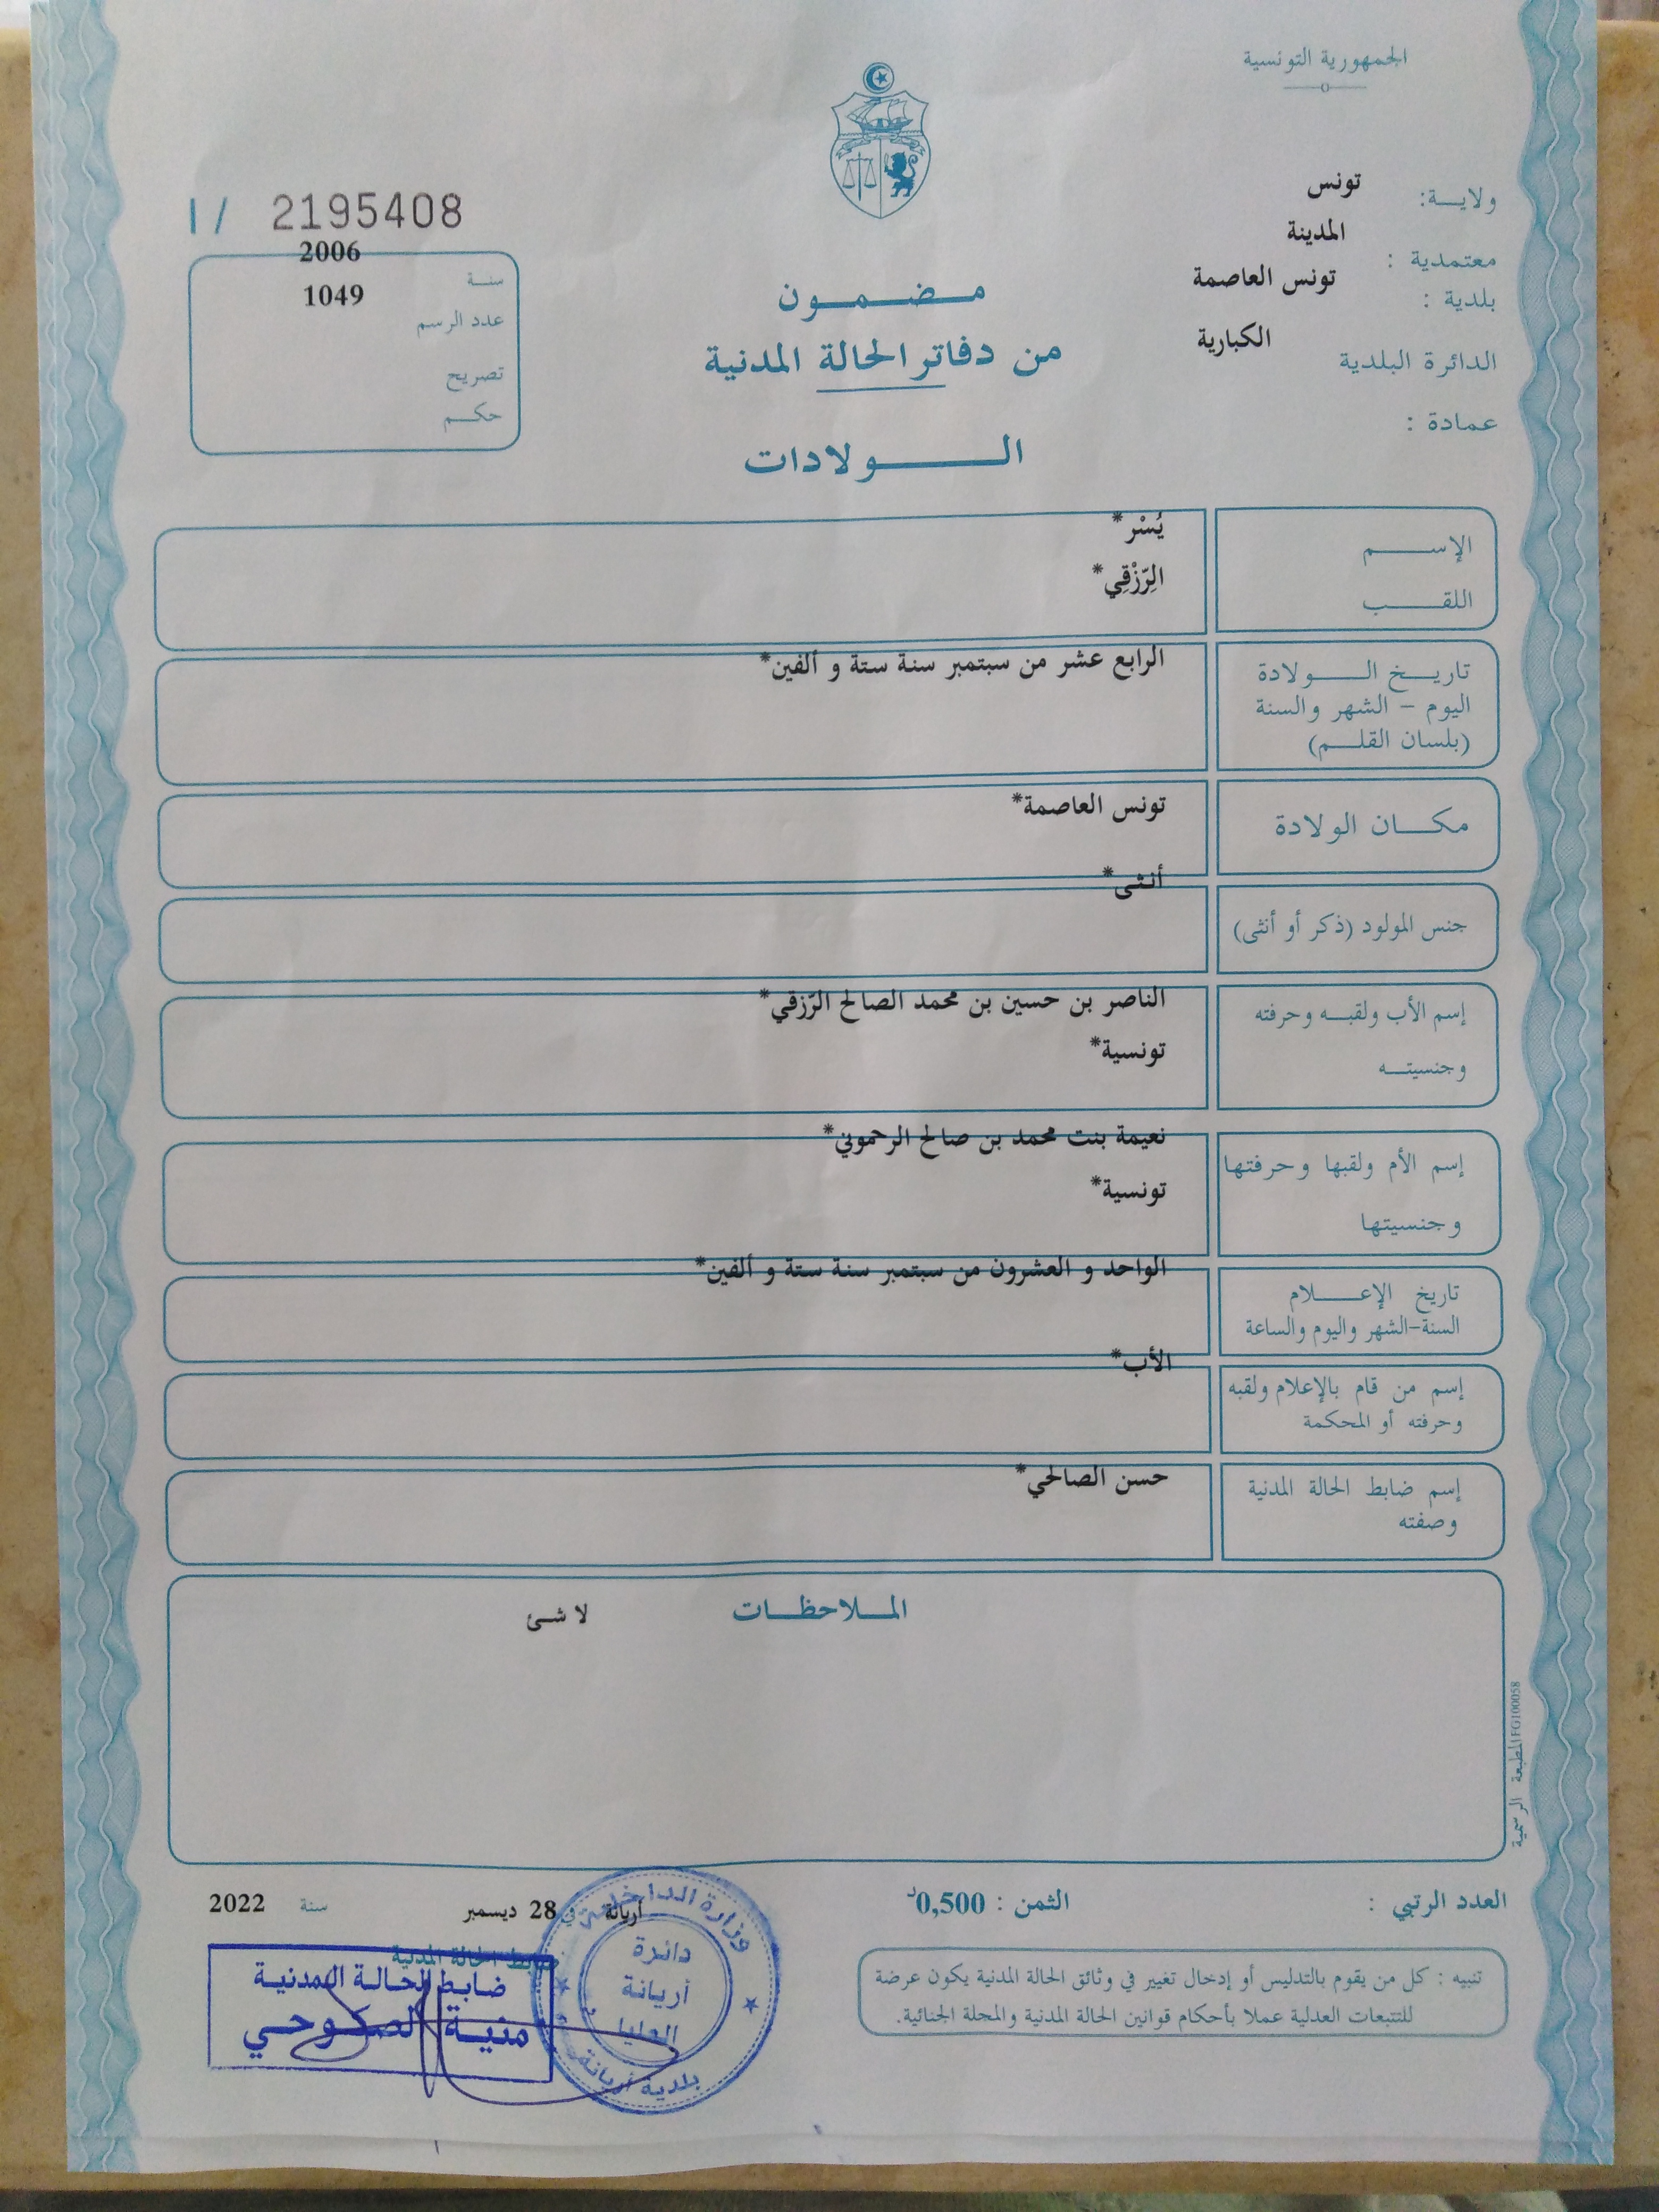 الجمهورية التونسية
ولايـــة: تونس
معتمدية : المدينة
بلدية : تونس العاصمة
الدائرة البلدية الكبارية
عمادة :
I / 2195408
سنــة 2006
عدد الرسم 1049
تصريح
حكــم
مـضـمـون
من دفاتر الحالة المدنية
الـــولادات
الإســـــم يُسْر*
اللقـــــب الِرّزْقِي*
تاريــخ الـــولادة الرابع عشر من سبتمبر سنة ستة و ألفين*
اليوم - الشهر والسنة
(بلسان القلــم)
مكـــان الولادة تونس العاصمة*
جنس المولود (ذكر أو أنثى) أنثى*
إسم الأب ولقبــه وحرفته الناصر بن حسين بن محمد الصالح الرّزقي*
وجنسيتــه تونسية*
إسم الأم ولقبها وحرفتها نعيمة بنت محمد بن صالح الرحموني*
وجنسيتها تونسية*
تاريخ الإعـــلام الواحد و العشرون من سبتمبر سنة ستة و ألفين*
السنة-الشهر واليوم والساعة
إسم من قام بالإعلام ولقبه الأب*
وحرفته أو المحكمة
إسم ضابط الحالة المدنية حسن الصالحي*
وصفته
المــلاحظــات لا شئ
المطبعة الرسمية FG100058
العدد الرتبي :
الثمن : 0,500د
أريانة في 28 ديسمبر سنة 2022
ضابط الحالة المدنية
ضابط الحالة المدنية
منية الصكوحي
وزارة الداخلية
دائرة
أريانة
العليا
بلدية أريانة
تنبيه : كل من يقوم بالتدليس أو إدخال تغيير في وثائق الحالة المدنية يكون عرضة
للتتبعات العدلية عملا بأحكام قوانين الحالة المدنية والمجلة الجنائية.